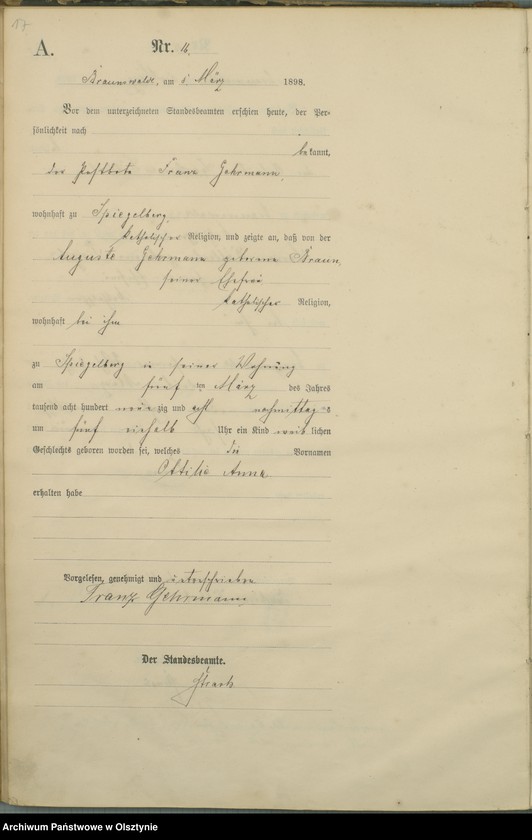 17
A. Nr. 16.
Braunswalde, am März 1898.
Vor dem unterzeichneten Standesbeamten erschien heute, der Per-
sönlichkeit nach
bekannt,
der Postbote Franz Gehrmann,
wohnhaft zu Spiegelberg,
katholischer Religion, und zeigte an, daß von der
Auguste Gehrmann geborene Braun,
seiner Ehefrau
katholischer Religion,
wohnhaft bei ihm
zu Spiegelberg in seiner Wohnung
am fünf ten März des Jahres
tausend acht hundert neunzig und acht nachmittags
um fünf einhalb Uhr ein Kind weiblichen
Geschlechts geboren worden sei, welches die Vornamen
Ottilie Anna
erhalten habe
Vorgelesen, genehmigt und unterschrieben
Franz Gehrmann
Der Standesbeamte.
Archiwum Państwowe w Olsztynie